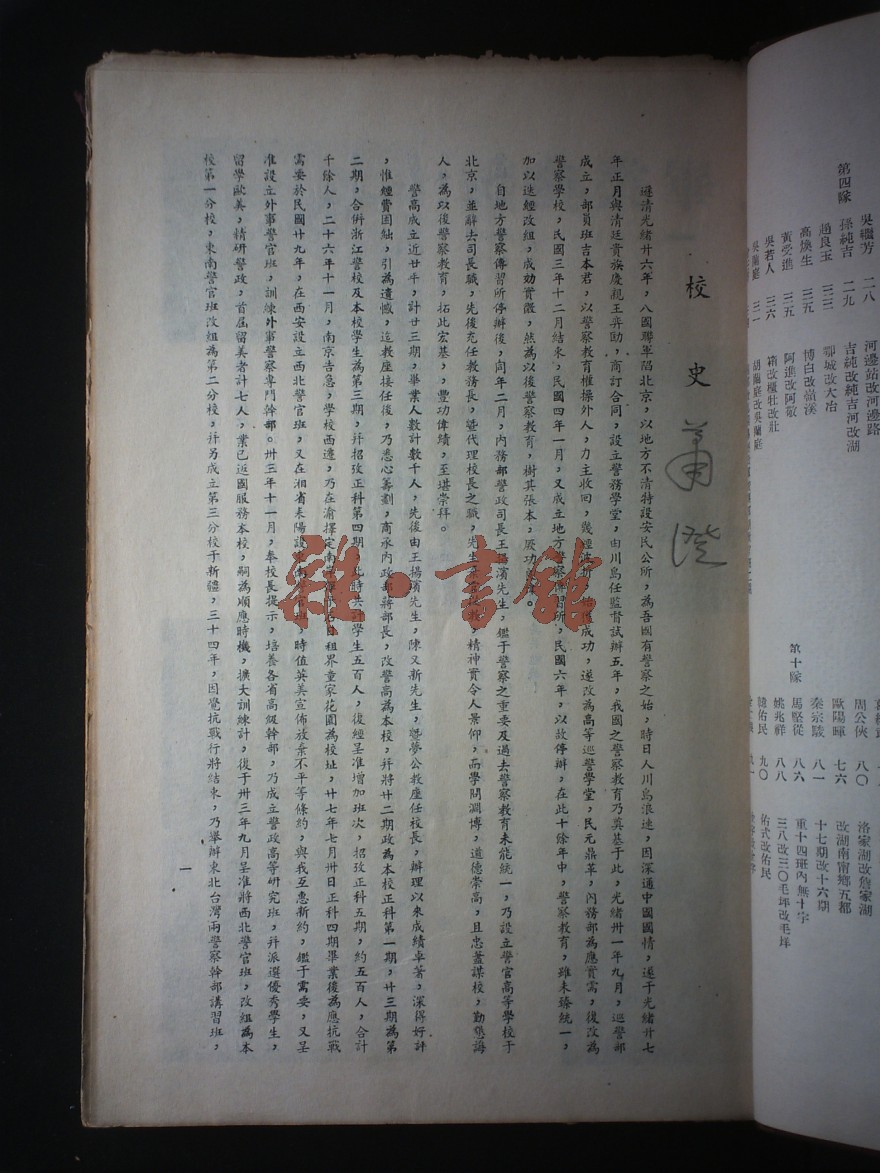 校史
遜清光緒廿六年，八國聯軍陷北京，以地方不清特設安民公所，為吾國有警察之始，時日人川島浪速，因深通中國國情，遂于光緒廿七
年正月與清廷貴族慶親王奕劻，商訂合同，設立警務學堂，由川島任監督試辦五年，我國之警察教育乃奠基于此，光緒卅一年九月，巡警部
成立，部員班吉本君，以警察教育權操外人，力主收回，幾經波折，始獲成功，遂改為高等巡警學堂，民元鼎革，內務部為應實需，復改為
警察學校，民國三年十二月結束，民國四年一月，又成立地方警察傳習所，民國六年，以故停辦，在此十余年中，警察教育，雖未臻統一，
加以迭經改組，成効實微，然為以後警察教育，樹其張本，厥功
自地方警察傳習所停辦後，同年二月，內務部警政司長王揚濱先生，鑑于警察之重要及過去警察教育未能統一，乃設立警官高等學校于
北京，並辭去司長職，先後充任教務長，暨代理校長之職，先生 精神實令人景仰，高學問淵博，道德崇高，且忠藎謀校，勤懇誨
人，為以後警察教育，拓此宏基，，豐功偉績，至堪崇拜。
警高成立近廿年，計廿三期，畢業人數計數千人，先後由王揚濱先生，陳又新先生，酆夢公教座任校長，辦理以來成績卓著，深得好評
，惟經費困絀，引為遺憾，迄教座接任後，乃悉心籌劃，商承內政部蔣部長，改警高為本校，幷將廿二期改為本校正科第一期，廿三期為第
二期，合併浙江警校及本校學生為第三期，幷招攷正科第四期，此時共計學生五百人，復經呈准增加班次，招攷正科五期，約五百人，合計
千餘人，二十六年十一月，南京吉急，學校西遷，乃在渝擇定南岸彈子石日租界童家花園為校址，廿七年七月卅日正科四期畢業後為應抗戰
需要於民國廿九年，在西安設立西北警官班，又在湘省耒陽設東南警官班，時值英美宣佈放棄不平等條約，與我互惠新約，鑑于需要，又呈
准設立外事警官班，訓練外事警察專門幹部。卅三年十一月，奉校長提示，培養各省高級幹部，乃成立警政高等研究班，幷派選優秀學生，
留學歐美，精研警政，首屆留美者計七人，業已返國服務本校，嗣為順應時機，擴大訓練計，復于卅三年九月呈准將西北警官班，改組為本
校第一分校，東南警官班改組為第二分校，幷另成立第三分校于新疆，三十四年，因覺抗戰行將結束，乃舉辦東北台灣兩警察幹部講習班，
一
雜·書館
吳繼芳 二八 河邊站改河邊路
第四隊 孫純吉 二九 吉純改純吉河改湖
過良玉 三三 鄂城改大冶
高煥生 三五 博白改嶺溪
黃受進 三五 阿進改阿敬
吳若人 三六 箱改櫃牡改壯
吳蘭庭 三一 胡蘭庭改吳蘭庭
周公俠 八〇 洛家湖改詹家湖
歐陽暉 七六 改湖南甯鄉五都
秦宗駿 八一 十七期改十六期
第十隊 馬堅從 八六 重十四班內無十字
姚兆祥 八八 三八改三〇毛坪改毛垟
韓佑民 九〇 佑式改佑民